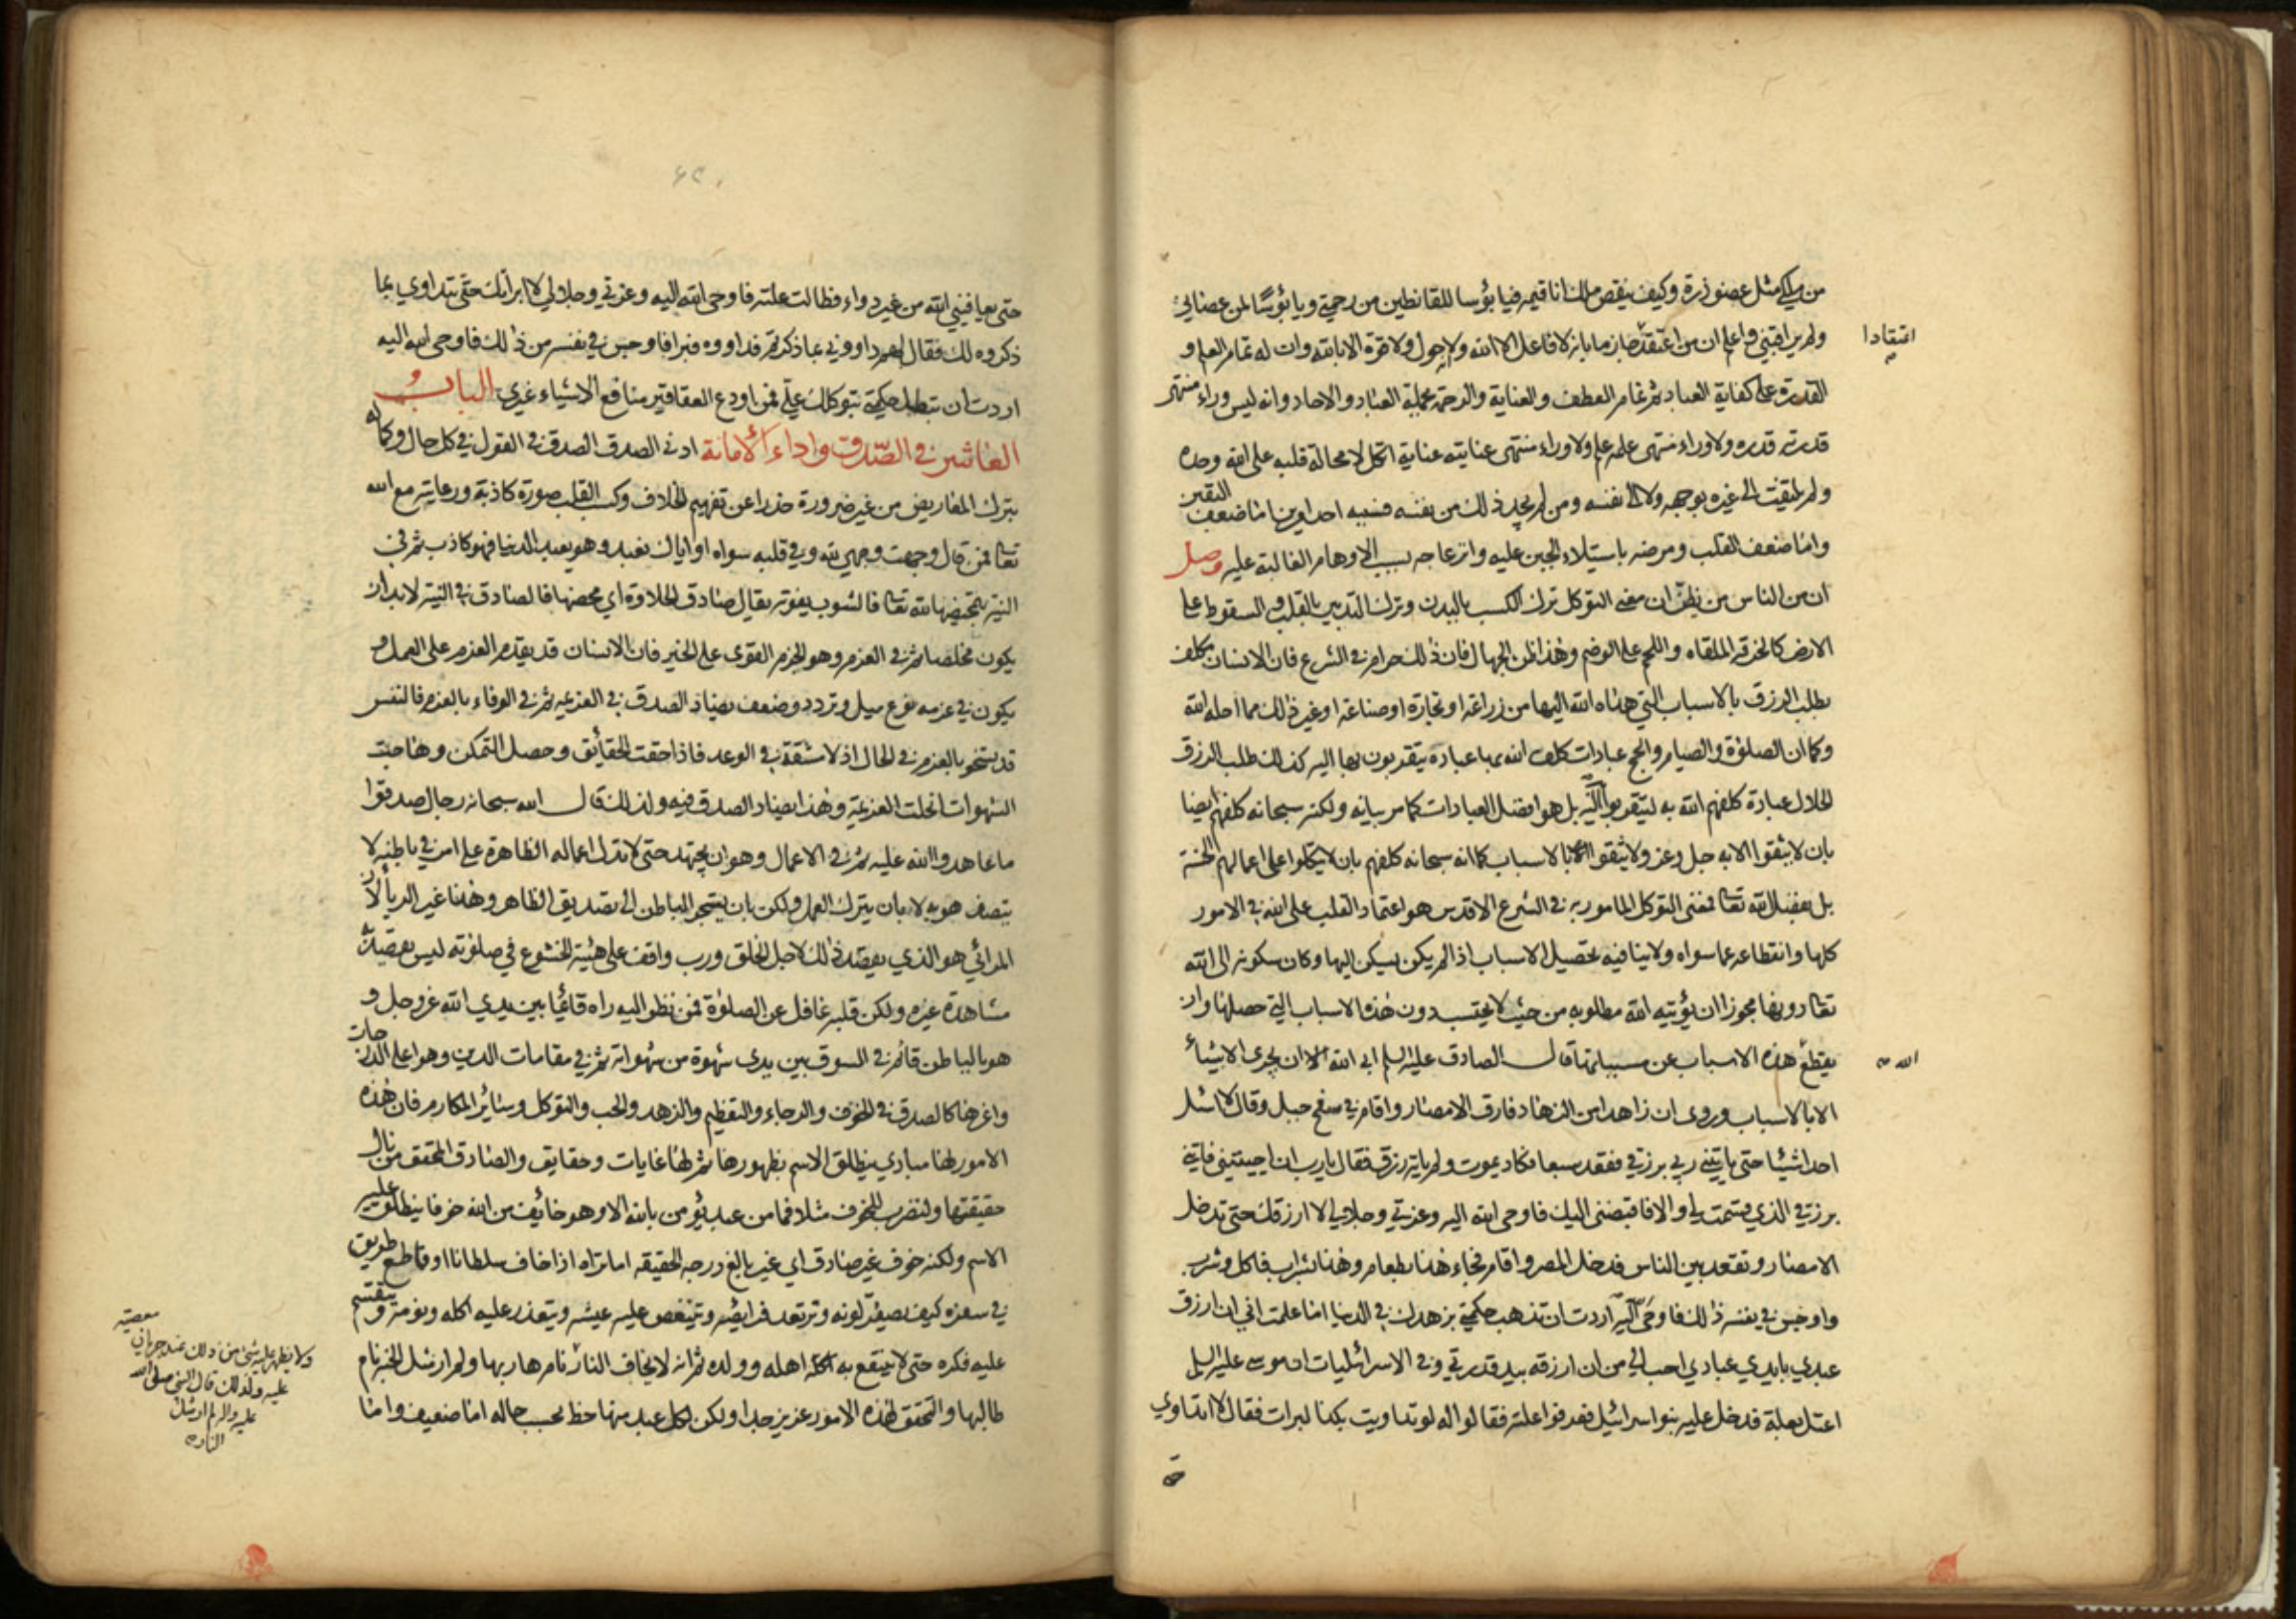 من ملكي مثل عضو ذرة وكيف ينقص ملك انا قيمه فيا بؤسا للقانطين من رحمتي ويا بؤسًا لمن عصاني
ولم يراقبني واعلم ان من اعتقد جازما بانه لا فاعل الا الله ولا حول ولا قوة الا بالله وان له تمام العلم و
اعتقادا
القدرة على كفاية العباد ثم تمام العطف والعناية والرحمة بجملة العباد والاحاد وانه ليس وراء منتهى
قدرته قدره ولا وراء منتهى علمه علم ولا وراء منتهى عنايته عناية اتكل لا محالة قلبه على الله وحده
ولم يلتفت الى غيره بوجهه ولا الى نفسه ومن لم يجد ذلك من نفسه فسببه احد امرين اما ضعف اليقين
واما ضعف القلب ومرضه باستيلاء الجبن عليه وانزعاجه بسبب الاوهام الغالبة عليه وصل
ان من الناس من يظن ان معنى التوكل ترك الكسب بالبدن وترك التدبير بالقلب والسقوط على
الارض كالخرقة الملقاه واللحم على الوضم وهذا ظن الجهال فان ذلك حرام في الشرع فان الانسان مكلف
بطلب الرزق بالاسباب التي هداه الله اليها من زراعة او تجارة او صناعة او غير ذلك مما احله الله
وكما ان الصلوة والصيام والحج عبادات كلف الله بها عباده يتقربون بها اليه كذلك طلب الرزق
الحلال عبادة كلفهم الله به ليتقربوا اليه بل هو افضل العبادات كما مر بيانه ولكنه سبحانه كلفهم ايضا
بان لا يثقوا الا به جل وعز ولا يثقوا بالاسباب كما انه سبحانه كلفهم بان لا يتكلوا على اعمالهم الحسنة
بل بفضل الله تعا فمعنى التوكل المامور به في الشرع الاقدس هو اعتماد القلب على الله في الامور
كلها وانقطاعه عما سواه ولا ينافيه تحصيل الاسباب اذا لم يكن يسكن اليها وكان سكونه الى الله
تعا دونها مجوزا ان يؤتيه الله مطلوبه من حيث لا يحتسب دون هذه الاسباب التي حصلها وان
يقطع هذه الاسباب عن مسبباتها قال الصادق عليه السلم ابى الله الا ان يجرى الاشياء
الله
الا بالاسباب وروى ان زاهدا من الزهاد فارق الامصار واقام في سفح جبل وقال لا اسئل
احدا شيئا حتى ياتيني ربي برزقي فقعد سبعا فكاد يموت ولم ياته رزق فقال يا رب ان احييتني فاتني
برزقي الذي قسمت لي والا فاقبضني اليك فاوحى الله اليه وعزتي وجلالي لا ارزقك حتى تدخل
الامصار وتقعد بين الناس فدخل المصر واقام فجاء هذا بطعام وهذا بشراب فاكل وشرب
واوجس في نفسه ذلك فاوحى اليه اردت ان تذهب حكمتي بزهدك في الدنيا اما علمت اني ان ارزق
عبدي بايدي عبادي احب الي من ان ارزقه بيد قدرتي وفي الاسرائيليات ان موسى عليه السلم
اعتل بعلة فدخل عليه بنو اسرائيل فعرفوا علته فقالوا له لو تداويت بكذا لبرات فقال لا اتداوي
حتى
حتى يعافيني الله من غير دواء فطالت علته فاوحى الله اليه وعزتي وجلالي لا ابرأتك حتى تتداوي بما
ذكروه لك فقال لهم داووني بما ذكرتم فداووه فبرا فاوجس في نفسه من ذلك فاوحى الله اليه
اردت ان تبطل حكمتي بتوكلك علي فمن اودع العقاقير منافع الاشياء غيري الباب
العاشر في الصدق واداء الامانة ادنى الصدق الصدق في القول في كل حال وكماله
بترك المعاريض من غير ضرورة حذرا عن تفهيم الخلاف وكسب القلب صورة كاذبة ورعايته مع الله
تعا فمن قال وجهت وجهي لله وفي قلبه سواه او اياك نعبد وهو يعبد الدنيا فهو كاذب ثم في
النية بتمحيضها لله تعا فالشوب يفوته يقال صادق الحلاوة اي محضها فالصادق في النية لا بد ان
يكون مخلصا ثم في العزم وهو الجزم القوى على الخير فان الانسان قد يقدم العزم على العمل و
يكون في عزمه نوع ميل وتردد وضعف يضاد الصدق في العزيمه ثم في الوفاء بالعزم فالنفس
قد يسخو بالعزم في الحال اذ لا مشقة في الوعد فاذا حقت الحقائق وحصل التمكن وهاجت
الشهوات انحلت العزيمة وهذا يضاد الصدق فيه ولذلك قال الله سبحانه رجال صدقوا
ما عاهدوا الله عليه ثم في الاعمال وهو ان يجتهد حتى لا تدل اعماله الظاهرة على امر في باطنه لا
يتصف هو به لا بان يترك العمل ولكن بان يستجر الباطن الى تصديق الظاهر وهذا غير الريا لان
المرائي هو الذي يقصد ذلك لاجل الخلق ورب واقف على هيئة الخشوع في صلوته ليس يقصد به
مشاهدة غيره ولكن قلبه غافل عن الصلوة فمن نظر اليه راه قائما بين يدي الله عز وجل و
هو بالباطن قائم في السوق بين يدى شهوة من شهواته ثم في مقامات الدين وهو اعلى الدرجات
واعزها كالصدق في الخوف والرجاء والتعظيم والزهد والحب والتوكل وسائر المكارم فان هذه
الامور لها مبادي ينطلق الاسم بظهورها ثم لها غايات وحقايق والصادق المحقق من نال
حقيقتها ولنضرب للخوف مثلا فما من عبد يؤمن بالله الا وهو خائف من الله خوفا ينطلق عليه
الاسم ولكنه خوف غير صادق اي غير بالغ درجه الحقيقه اما تراه اذا خاف سلطانا او قاطع طريق
في سفره كيف يصفر لونه وترتعد فرائصه ويتنغص عليه عيشه ويتعذر عليه اكله ونومه وينقسم
عليه فكره حتى لا ينتفع به اهله وولده ثم انه لا يخاف النار نام هاربها ولم ار مثل الجنة نام
طالبها والتحقق لهذه الامور عزيز جدا ولكن لكل عبد منها حظ بحسب حاله اما ضعيف واما
معصية
ولا يظهر عليه شئ من ذلك عند جريان
عليه ولذلك قال النبي صلى الله
عليه واله لم ار مثل
النار